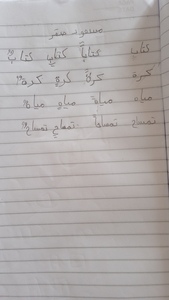 كتاب كتاباً كتابٍ كتابٌ
كرة كرةً كرةٍ كرةٌ
مياه مياهً مياهٍ مياهٌ
تمساح تمساحاً تمساحٍ تمساحٌ